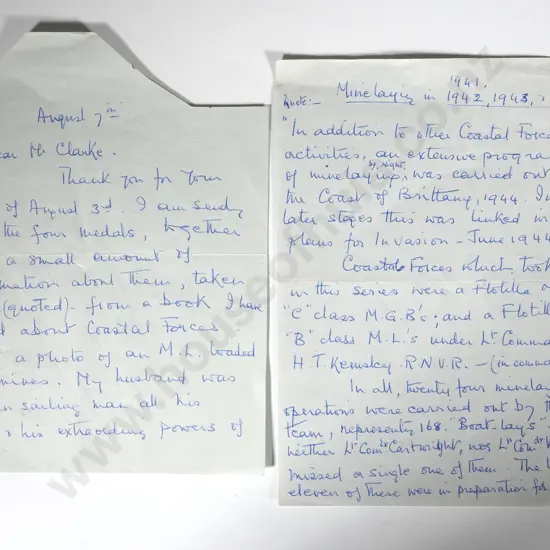 August 7th
ear Mr Clarke.
Thank you for your
of August 3rd. I am sendg
the four medals, together
a small amount of
mation about them, taken
(quoted) - from a book I have
d about Coastal Forces
a photo of an M.L. loaded
mines. My husband was
n sailing man all his
& his extraording powers of
1941.
Quote:- Minelaying in 1942, 1943,
"In addition to other Coastal Force
activities, an extensive progra
by night
of minelaying, was carried out
the Coast of Brittany, 1944. In
later stages this was linked w
plans for Invasion - June 1944
Coastal Forces which took
in this series were a Flotilla o
"C" class M.G.B's; and a Flotil
"B" class M.L's under Lt Comma
H.T. Kemsley. R.N.V.R. - (in comma
In all, twenty four minelay
operations were carried out by th
team, representg 168. 'Boat-lays'.
neither Lt Comdr Cartwright, nor Lt Comdr
missed a single one of them. The
eleven of these were in preparation for
www.houseofmedals.co.nz